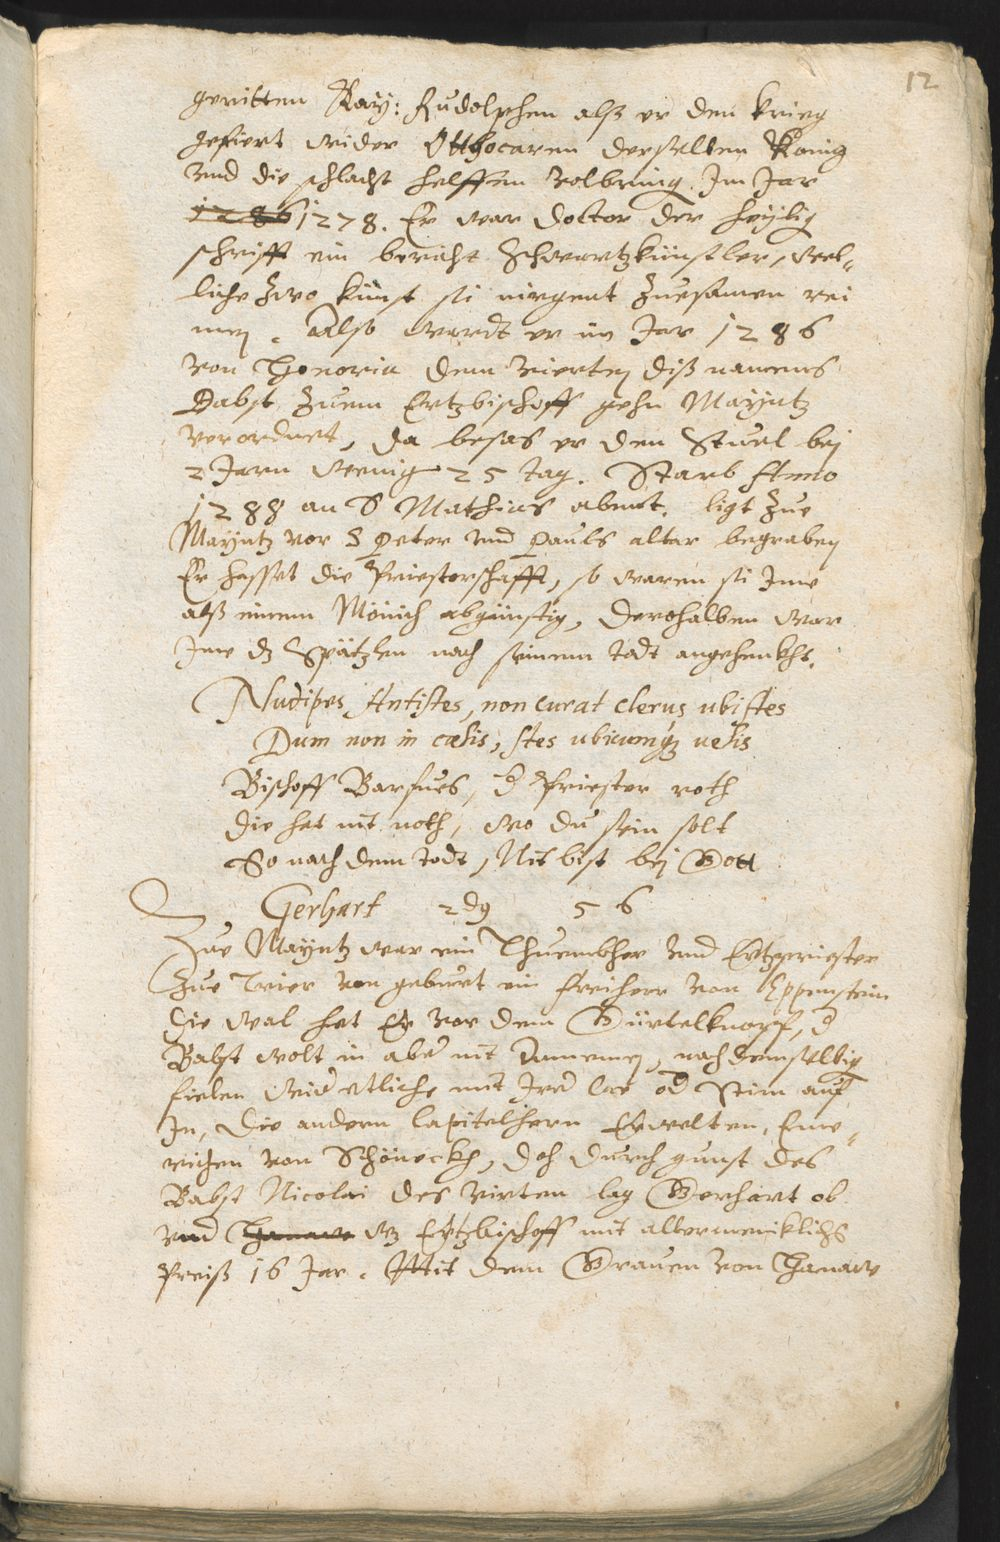 12
geritten Kay: Rudolphen alß er den krieg
gefiert wider Otthocaren derselben König
und die schlacht helffen volbring. Im Jar
1286 1278. Er war doctor der heÿlig
schrifft ein bericht Schwartzkünstler, wel-
liche zwo künst sÿ nirgent zuesamen rei
men. Also wardt er im Jar 1286
von Honorio dem vierten diß namens
Babst zuem Ertzbischoff gehn Mayntz
verordnet, da besas er den Stuel bej
2 Jarn wenig 25 tag. Starb Anno
1288 an S Mathias abent. ligt zue
Mayntz vor S Peter und Pauls altar begraben
Er hasset die Priesterschafft, so waren si Jme
alß einem Münich abgünstig, derohalben war
Jme dz Spätzlen nach seinem todt angehenkht.
Nudipes Antistes, non curat clerus ubi stes
Dum non in cœlis, stes ubicumqz uelis
Bischoff Barfues, d Priester roth
die hat nit noth, wo du sein solt
So nach dem todt, Nit bist bej Gott
Gerhart 2dg 56
Zue Mayntz war ein Thuembher und Ertzpriester
Zue Trier von geburt ein freiherr von Eppenstein
die wal het Er vor dem Gürtelknopf, d
Babst wolt in aber nit annemen, nach demselbig
fielen wider etliche mit Jrer od Stim auf
Jn, die andern Capitelhern Erwelten, Eme-
richen von Schöneckh, doch durch gunst des
Babst Nicolai des virten lag Gerhart ob
und Hanaw wz Ertzbischoff mit allermeniklichs
Preiß 16 Jar. Mit dem Grauen von Hanaw